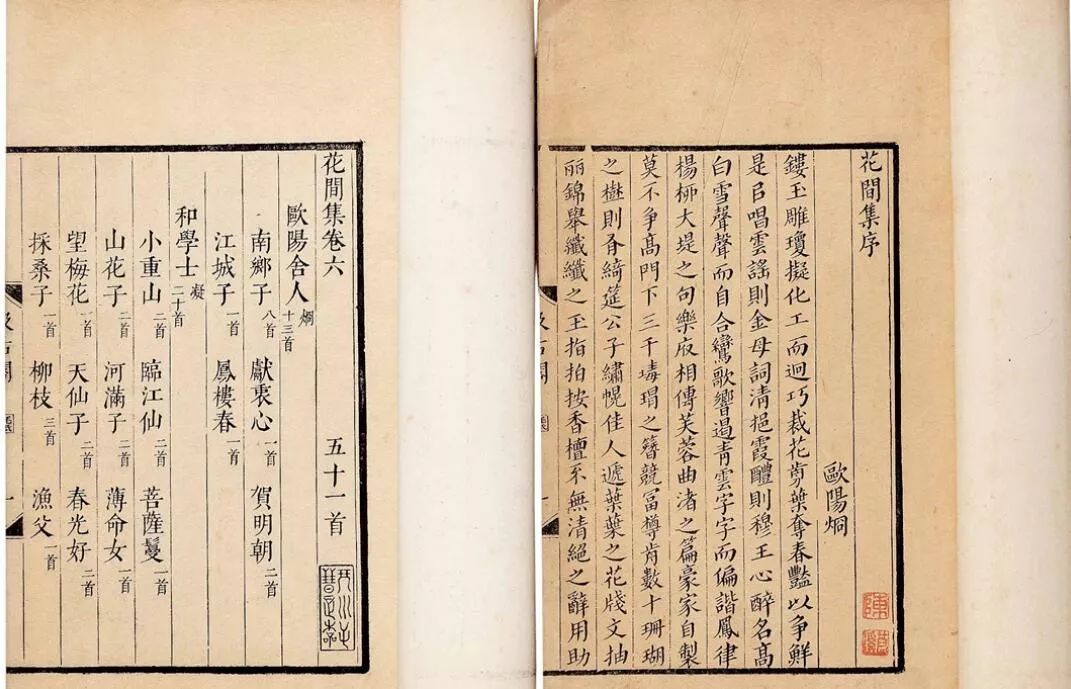 花間集序
歐陽烱
鏤玉雕瓊擬化工而迴巧裁花剪葉奪春豔以爭鮮
是㠯唱雲謠則金母詞清挹霞醴則穆王心醉名高
白雪聲聲而自合鸞歌響遏青雲字字而偏諧鳳律
楊柳大堤之句樂府相傳芙蓉曲渚之篇豪家自製
莫不爭高門下三千瑇瑁之簪競冨樽前數十珊瑚
之樹則有綺筵公子繡幌佳人遞葉葉之花牋文抽
丽錦舉纖纖之玉指拍按香檀不無清絕之辭用助
花間集卷六 五十一首
歐陽舍人烱十三首
南鄉子八首 獻衷心一首 賀明朝二首
江城子一首 鳳樓春一首
和學士凝二十首
小重山二首 臨江仙二首 菩薩蠻一首
山花子二首 河滿子二首 薄命女一首
望梅花一首 天仙子二首 春光好二首
採桑子一首 柳枝三首 漁父一首